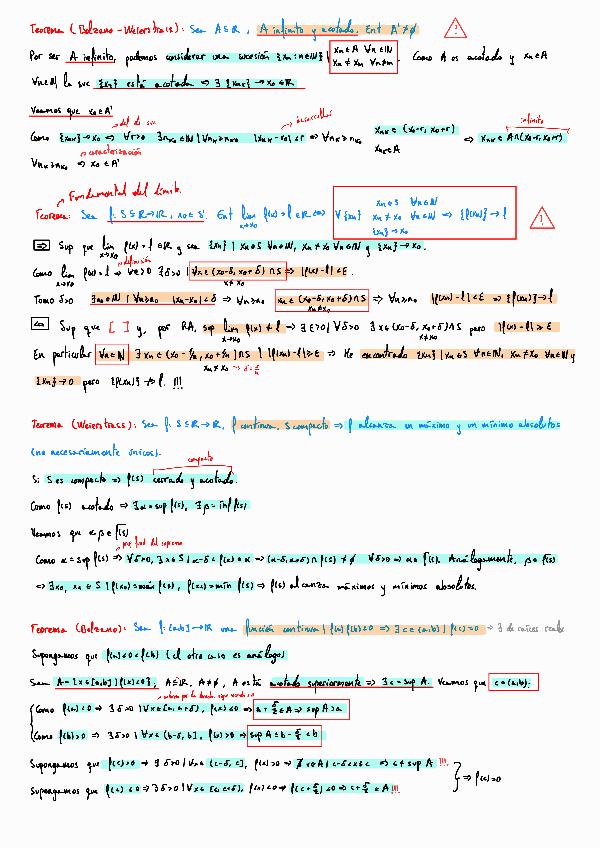 Teorema (Bolzano-Weierstrass): Sea A⊆ℝ, A infinito y acotado. Ent A'≠∅
Por ser A infinito, podemos considerar una sucesión {xn : n∈ℕ} | xn∈A ∀n∈ℕ xn≠xm ∀n≠m. Como A es acotado y xn∈A
∀n∈ℕ la suc {xn} está acotada ⇒ ∃{xnk}→x0∈ℝ
Veamos que x0∈A'
def de suc
Como {xnk}→x0 ⇒ ∀r>0 ∃nk0∈ℕ | ∀nk≥nk0 |xnk-x0|<r ⇒ ∀nk≥nk0 xnk∈(x0-r, x0+r) xnk∈A ⇒ xnk∈A∩(x0-r, x0+r)
infinito
∀nk≥nk0 ⇒ x0∈A'
caracterización
Fundamental del límite.
Teorema: Sea f: S⊆ℝ→ℝ, x0∈S'. Ent lim x→x0 f(x)=l∈ℝ ⇔ ∀{xn} xn∈S ∀n∈ℕ xn≠x0 ∀n∈ℕ {xn}→x0 ⇒ {f(xn)}→l
⇒ Sup que lim x→x0 f(x)=l∈ℝ y sea {xn} | xn∈S ∀n∈ℕ, xn≠x0 ∀n∈ℕ y {xn}→x0.
definición
Como lim x→x0 f(x)=l ⇒ ∀ε>0 ∃δ>0 | ∀x∈(x0-δ, x0+δ)∩S x≠x0 ⇒ |f(x)-l|<ε.
Tomo δ>0 ∃n0∈ℕ | ∀n≥n0 |xn-x0|<δ ⇒ ∀n≥n0 xn∈(x0-δ, x0+δ)∩S xn≠x0 ⇒ ∀n≥n0 |f(xn)-l|<ε ⇒ {f(xn)}→l
⇐ Sup que [ ] y, por RA, sup lim x→x0 f(x)≠l ⇒ ∃ε>0 | ∀δ>0 ∃x∈(x0-δ, x0+δ)∩S x≠x0 pero |f(x)-l|≥ε
En particular ∀n∈ℕ ∃xn∈(x0-1/n, x0+1/n)∩S | |f(xn)-l|≥ε ⇒ He encontrado {xn} | xn∈S ∀n∈ℕ, xn≠x0 ∀n∈ℕ y
xn≠x0 → δ=1/n
{xn}→0 pero {f(xn)}↛l. !!!
Teorema (Weierstrass): Sea f: S⊆ℝ→ℝ, f continua, S compacto ⇒ f alcanza un máximo y un mínimo absolutos
(no necesariamente únicos).
compacto
Si S es compacto ⇒ f(S) cerrado y acotado.
Como f(S) acotado ⇒ ∃α=sup f(S), ∃β=inf f(S)
Veamos que α,β∈f(S)
prop fund del supremo
Como α=sup f(S) ⇒ ∀δ>0, ∃x∈S | α-δ<f(x)≤α ⇒ (α-δ,α+δ)∩f(S)≠∅ ∀δ>0 ⇒ α∈f(S). Análogamente, β∈f(S)
⇒ ∃x0, x1∈S | f(x0)=máx f(S), f(x1)=mín f(S) ⇒ f(S) alcanza máximos y mínimos absolutos.
Teorema (Bolzano): Sea f: [a,b]→ℝ una función continua | f(a)f(b)<0 ⇒ ∃c∈(a,b) | f(c)=0 → ∃ de raíces reales
Supongamos que f(a)<0<f(b) (el otro caso es análogo)
Sean A={x∈[a,b] | f(x)<0}, A⊆ℝ, A≠∅, A está acotado superiormente ⇒ ∃c=sup A. Veamos que c∈(a,b):
Como f(a)<0 ⇒ ∃δ>0 | ∀x∈[a,a+δ), f(x)<0 ⇒ a+δ/2∈A ⇒ sup A>a
Como f(b)>0 ⇒ ∃δ>0 | ∀x∈(b-δ,b], f(x)>0 ⇒ sup A≤b-δ/2<b
Supongamos que f(c)>0 ⇒ ∃δ>0 | ∀x∈(c-δ,c], f(x)>0 ⇒ ∄x∈A | c-δ<x≤c ⇒ c≠sup A !!!
⇒ f(c)=0
Supongamos que f(c)<0 ⇒ ∃δ>0 | ∀x∈[c,c+δ), f(x)<0 ⇒ f(c+δ/2)<0 ⇒ c+δ/2∈A !!!